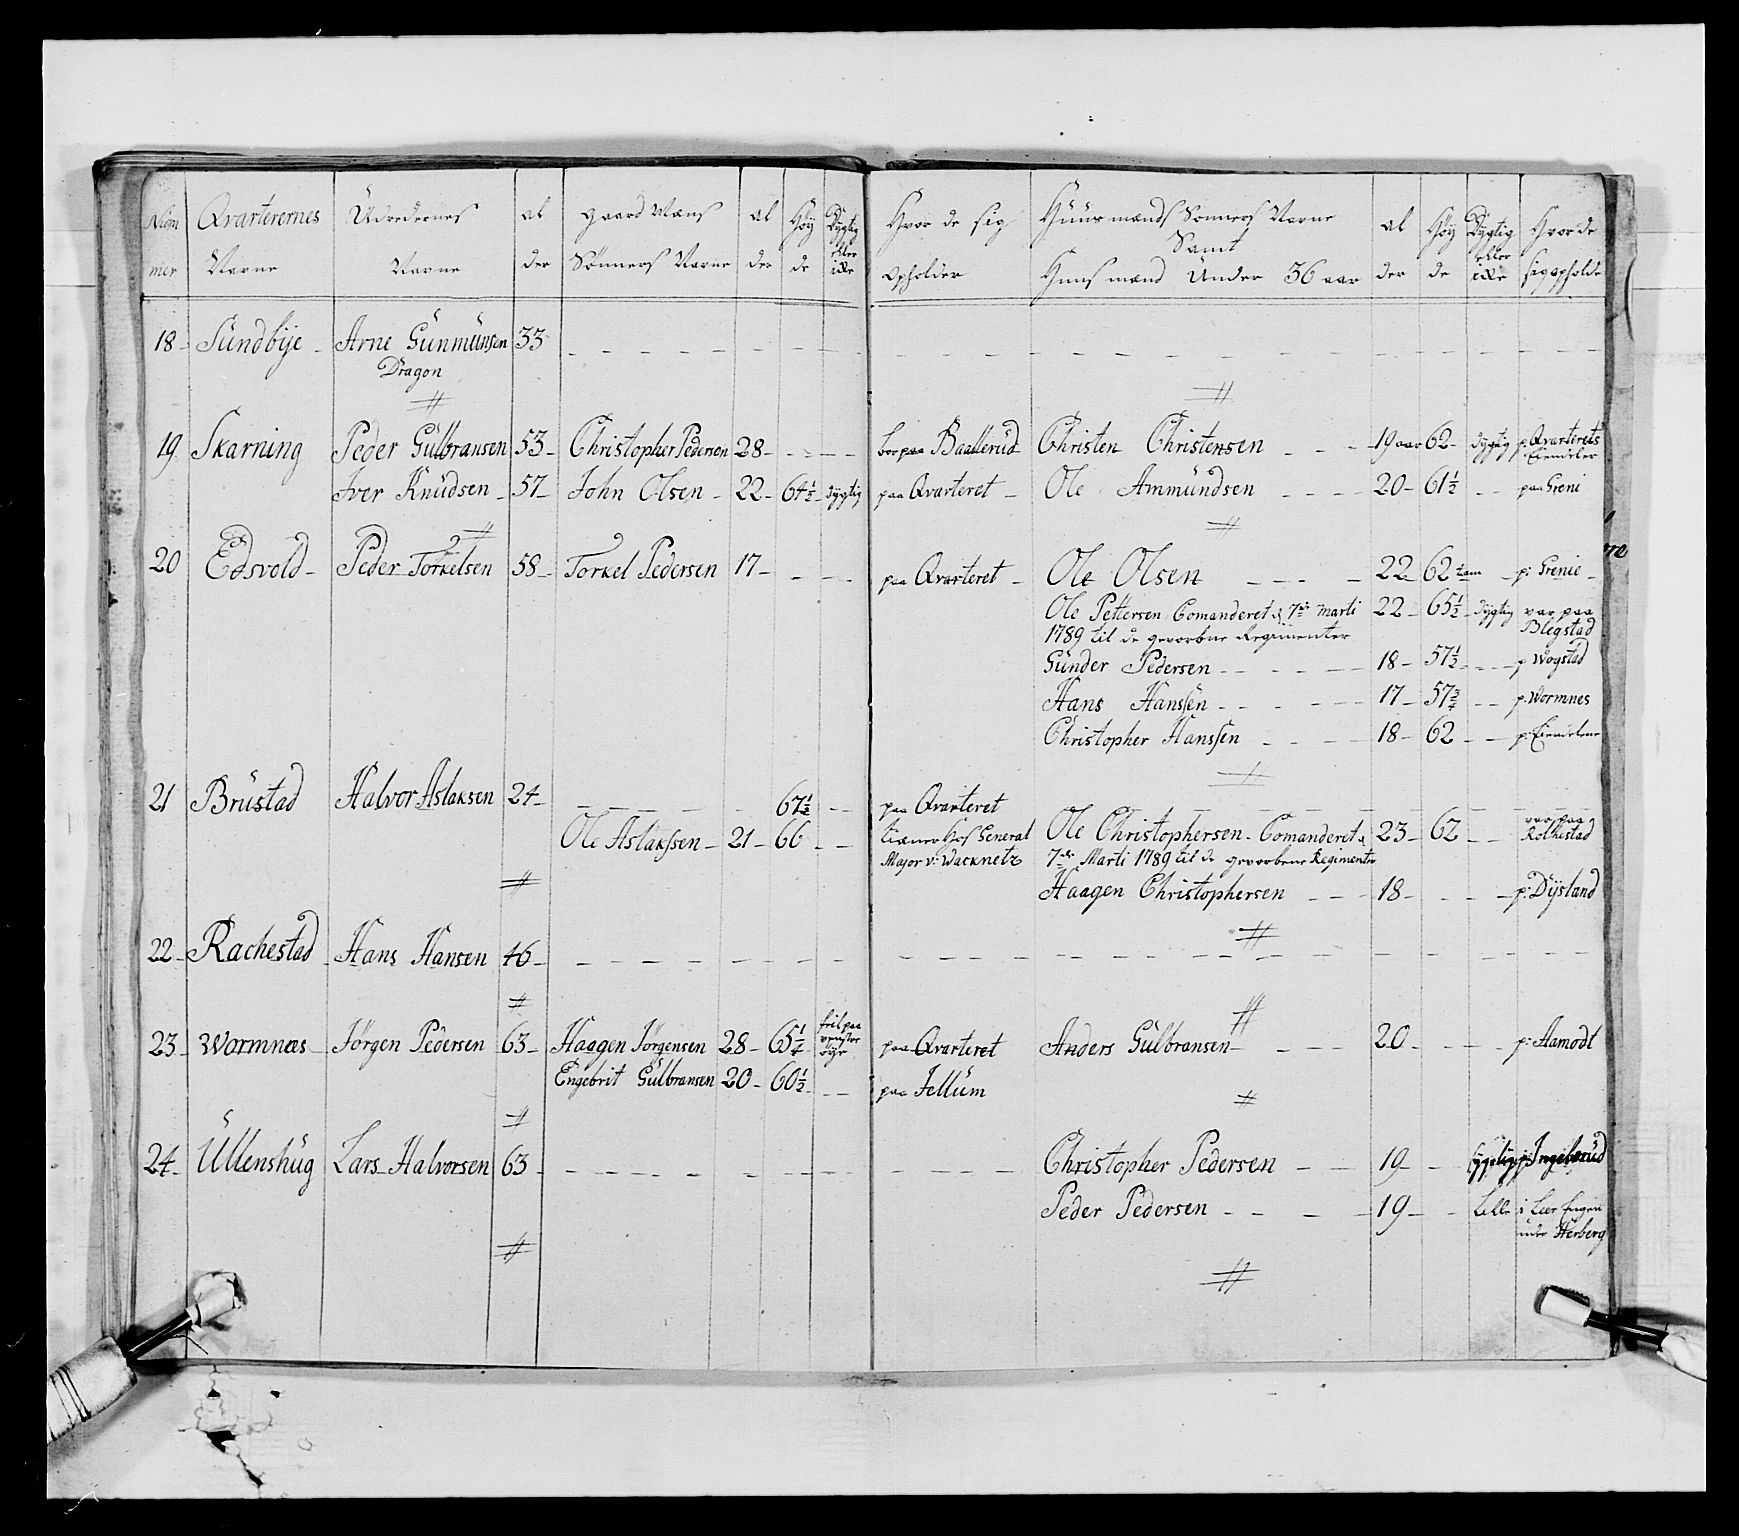 Num mer | Qvarterernes Navne | Udredernes Navne | al der | gaard Mæns Sønners Navne | al der | Høy de | Dygtig eller ikke | Hvor de sig opholder | Huusmænds Sønners Navne Samt Huusmænd Under 36 aar | al der | Høy de | Dygtig eller ikke | Hvor de sig opholde
18 Sundbije Arne Gunmunsen 33
Dragon
19 Skarning Peder Gulbransen 53 Christopher Pedersen 28 boe paa Baallerud Christen Christensen 19 aar 62 dygtig p Qvarterets Eiendeler
Iver Knudsen 57 John Olsen 22 64½ dygtig paa Qvarteret Ole Ammundsen 20 61½ paa Greni
20 Edsvold Peder Torkelsen 58 Torkel Pedersen 17 paa Qvarteret Ole Olsen 22 62 p: Grenie
Ole Pettersen Comanderet d 7de Marti 22 65½ dygtig var paa Blegstad
1789 til de gevorbne Regimenter
Gunder Pedersen 18 57½ p Wogstad
Hans Hanssen 17 57¾ p: Wormnes
Christopher Hanssen 18 62
21 Brustad Halvor Aslaksen 24 67½ paa Qvarteret
Ole Aslakssen 21 66 tiæner Hos General Ole Christophersen Comanderet d 23 62 var paa Rolhestad
Major v: Wacknetz 7de Marti 1789 til de gevorbene Regimenter
Haagen Christophersen 18 p: Dystand
22 Rachestad Hans Hansen 46
23 Wormnæs Jörgen Pedersen 63 Haagen Jörgensen 28 65¼ feil paa venster öye paa Qvarteret Anders Gulbransen 20 p: Aamodt
Engebrit Gulbransen 20 60½ paa Jellum
24 Ullenshug Lars Halvorsen 63 Christopher Pedersen 19 p: Ingelsrud
Peder Pedersen 19 Lille i Leer Engen under Herberg